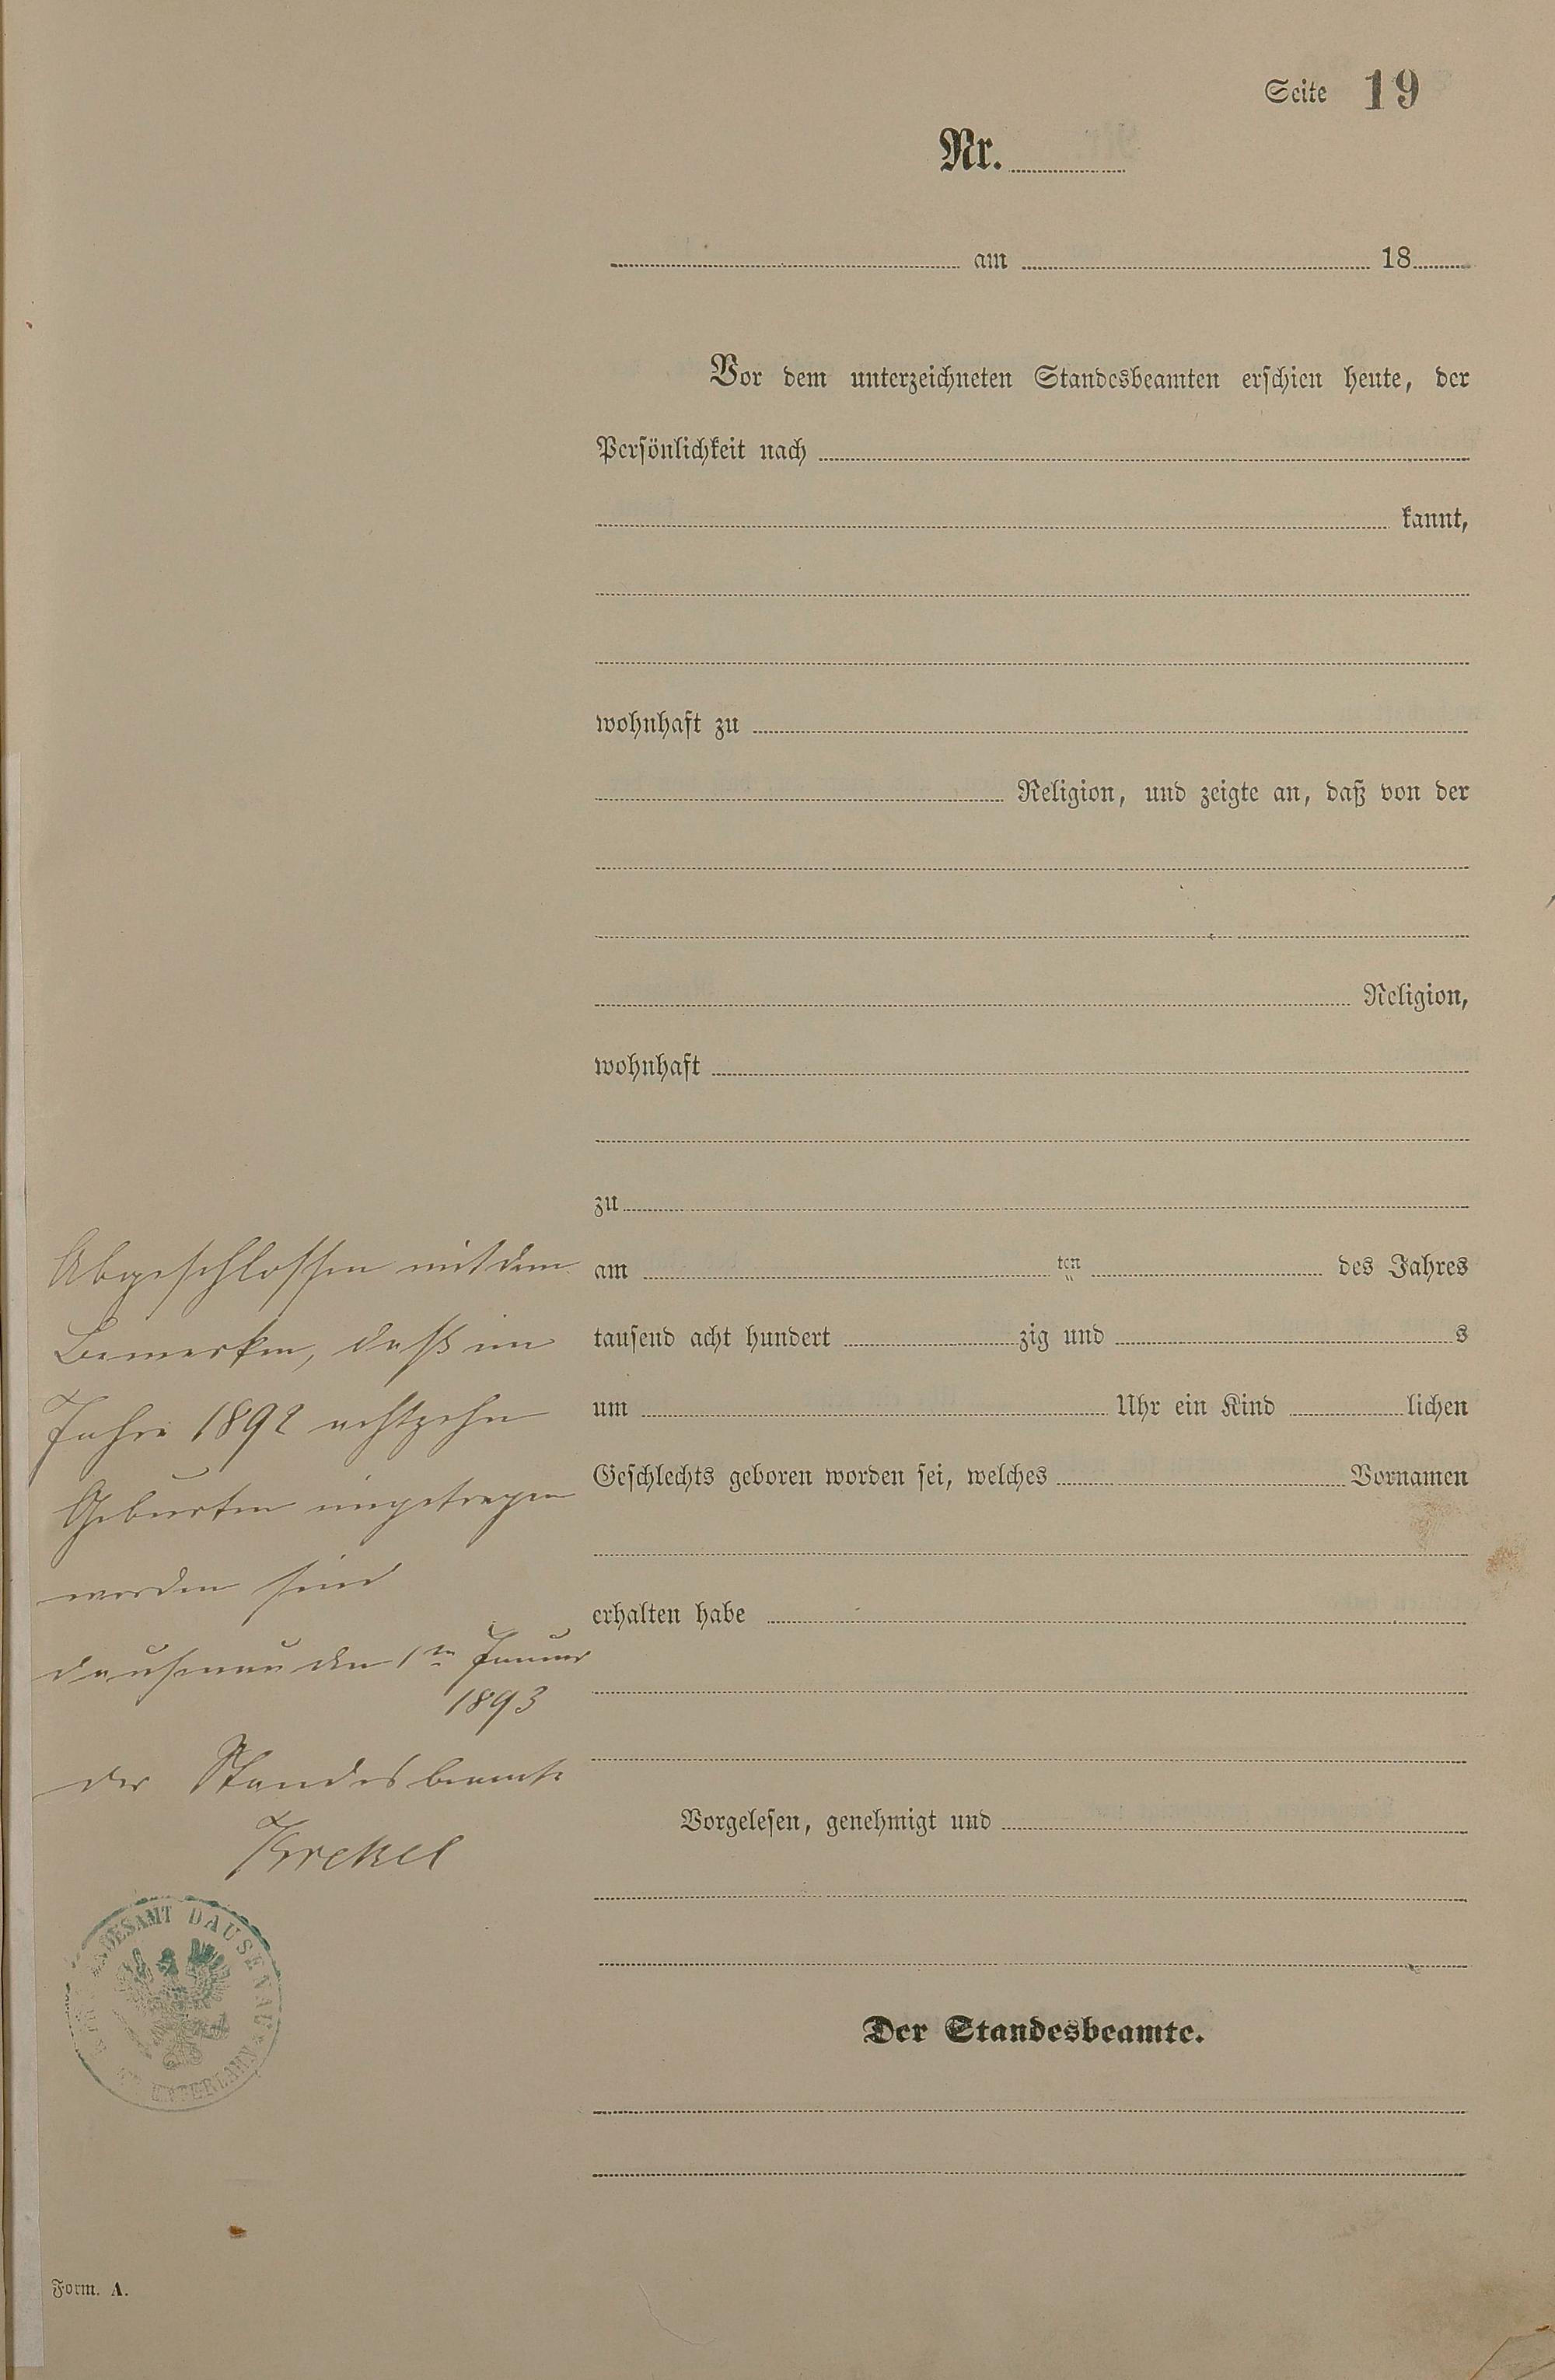 Seite 19
Nr.
am 18
Vor dem unterzeichneten Standesbeamten erschien heute, der
Persönlichkeit nach
kannt,
wohnhaft zu
Religion, und zeigte an, daß von der
Religion,
wohnhaft
zu
am ten des Jahres
tausend acht hundert zig und s
um Uhr ein Kind lichen
Geschlechts geboren worden sei, welches Vornamen
erhalten habe
Vorgelesen, genehmigt und
Der Standesbeamte.
Abgeschlossen mit dem
Bemerken, daß im
Jahre 1892 achtzehn
Geburten eingetragen
worden sind
Dausenau den 1ten Januar
1893
Der Standesbeamte
Krekel
STANDESAMT DAUSENAU
UNTERLAHN
Form. A.